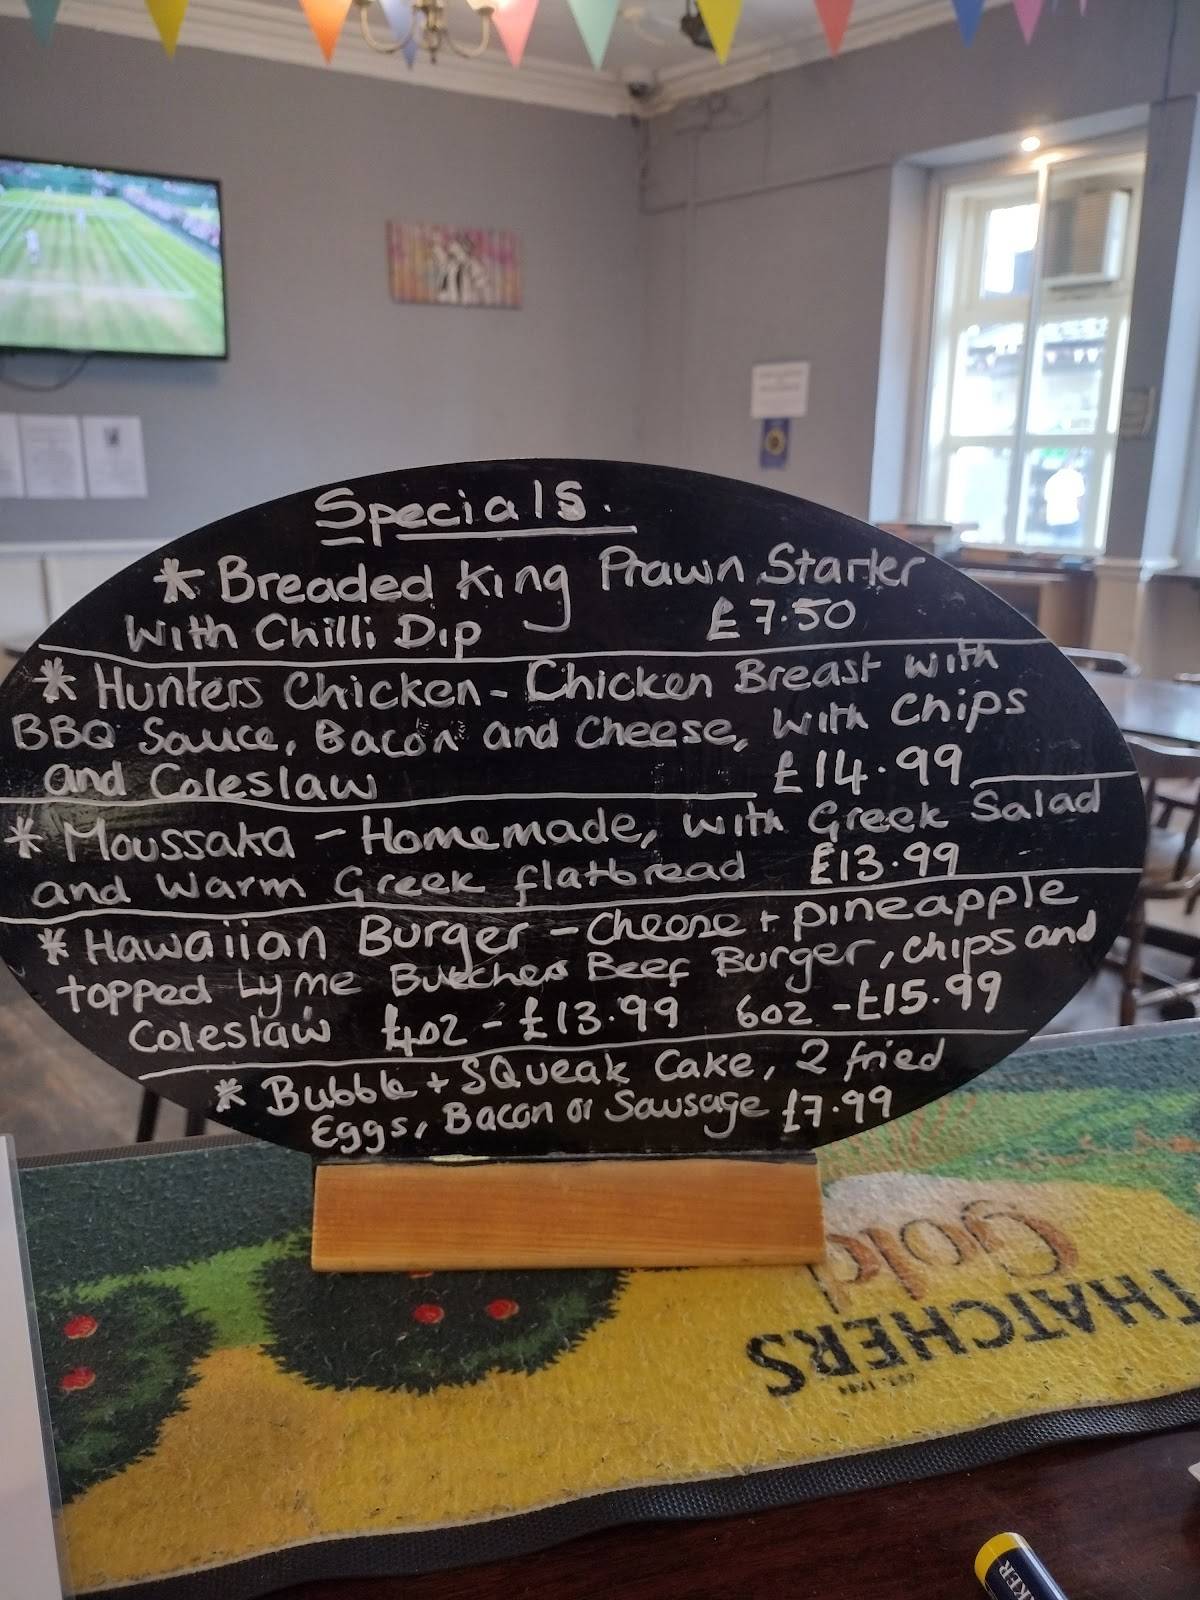 Specials.
* Breaded King Prawn Starter
With Chilli Dip £7.50
* Hunters Chicken - Chicken Breast with
BBQ Sauce, Bacon and Cheese, with Chips
and Coleslaw £14.99
* Moussaka - Homemade, with Greek Salad
and Warm Greek flatbread £13.99
* Hawaiian Burger - Cheese + pineapple
topped Lyme Butchers Beef Burger, chips and
Coleslaw £4oz - £13.99 6oz - £15.99
* Bubble + SQueak Cake, 2 fried
Eggs, Bacon or Sausage £7.99
THATCHERS
Gold